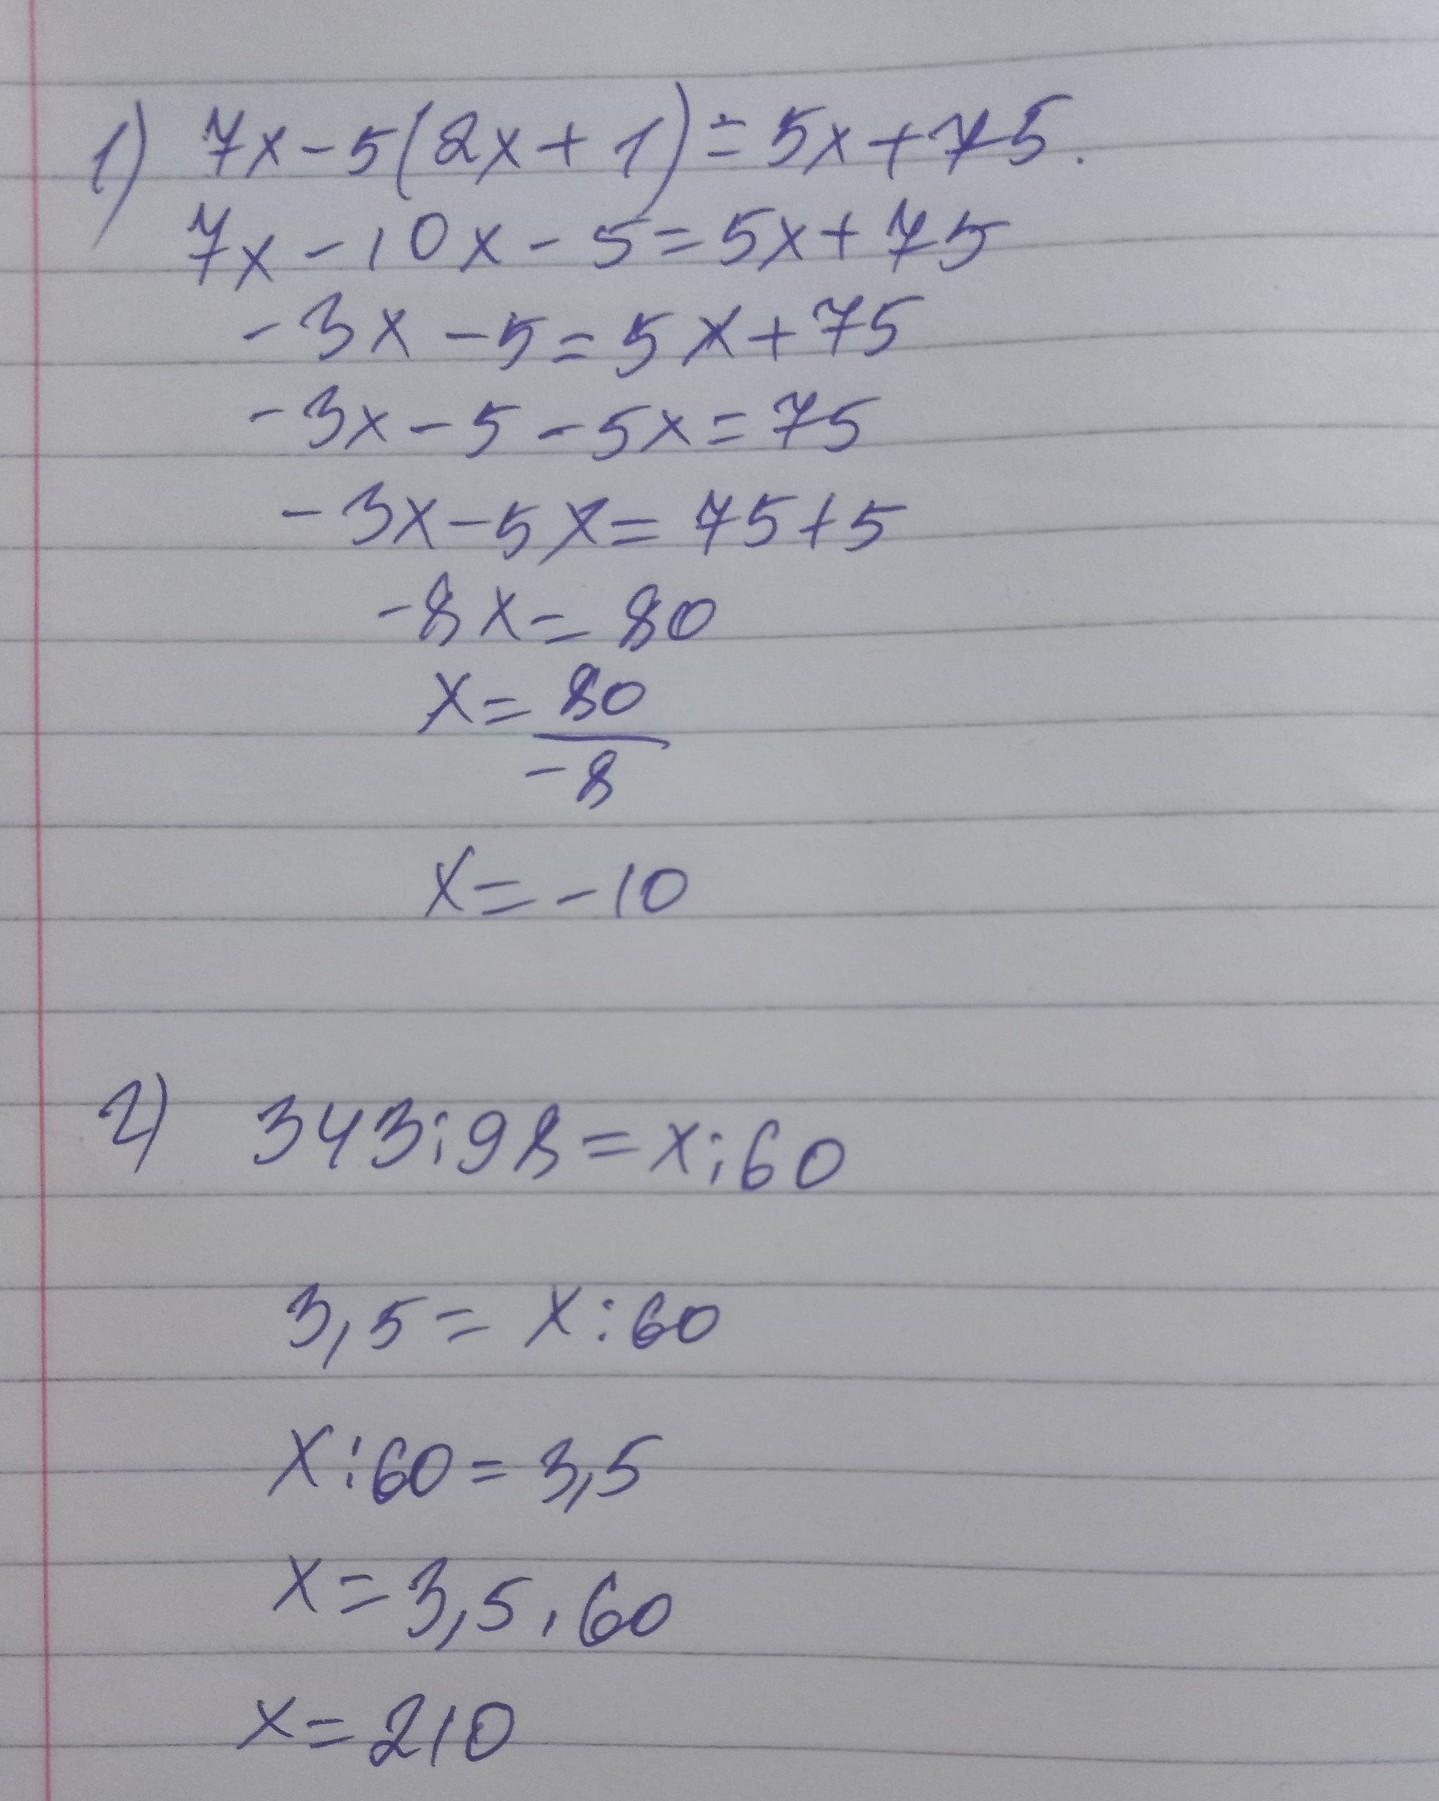 1) 7x-5(2x+1)=5x+75.
7x-10x-5=5x+75
-3x-5=5x+75
-3x-5-5x=75
-3x-5x=75+5
-8x=80
x=80/-8
x=-10
2) 343:98=x:60
3,5=x:60
x:60=3,5
x=3,5.60
x=210